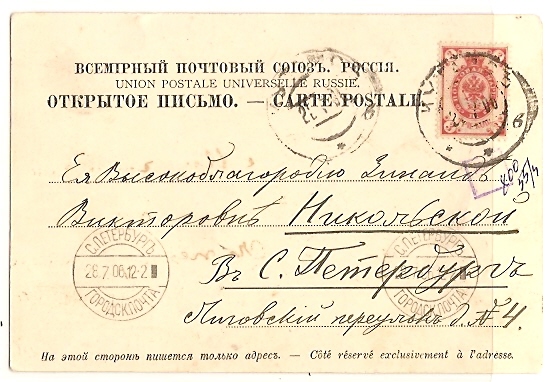 ВСЕМІРНЫЙ ПОЧТОВЫЙ СОЮЗЪ. РОССІЯ.
UNION POSTALE UNIVERSELLE RUSSIE.
ОТКРЫТОЕ ПИСЬМО. — CARTE POSTALE.
Ея Высокоблагородію Зинаидѣ
Викторовнѣ Никольской
Въ С. Петербургѣ
Лиговскій переулокъ д. № 4.
С.ПЕТЕРБУРГЪ
28.7.06.12-2
ГОРОДСК.ПОЧТА
С.ПЕТЕРБУРГЪ
ГОРОДСК.ПОЧТА
На этой сторонѣ пишется только адресъ. — Côté réservé exclusivement à l'adresse.